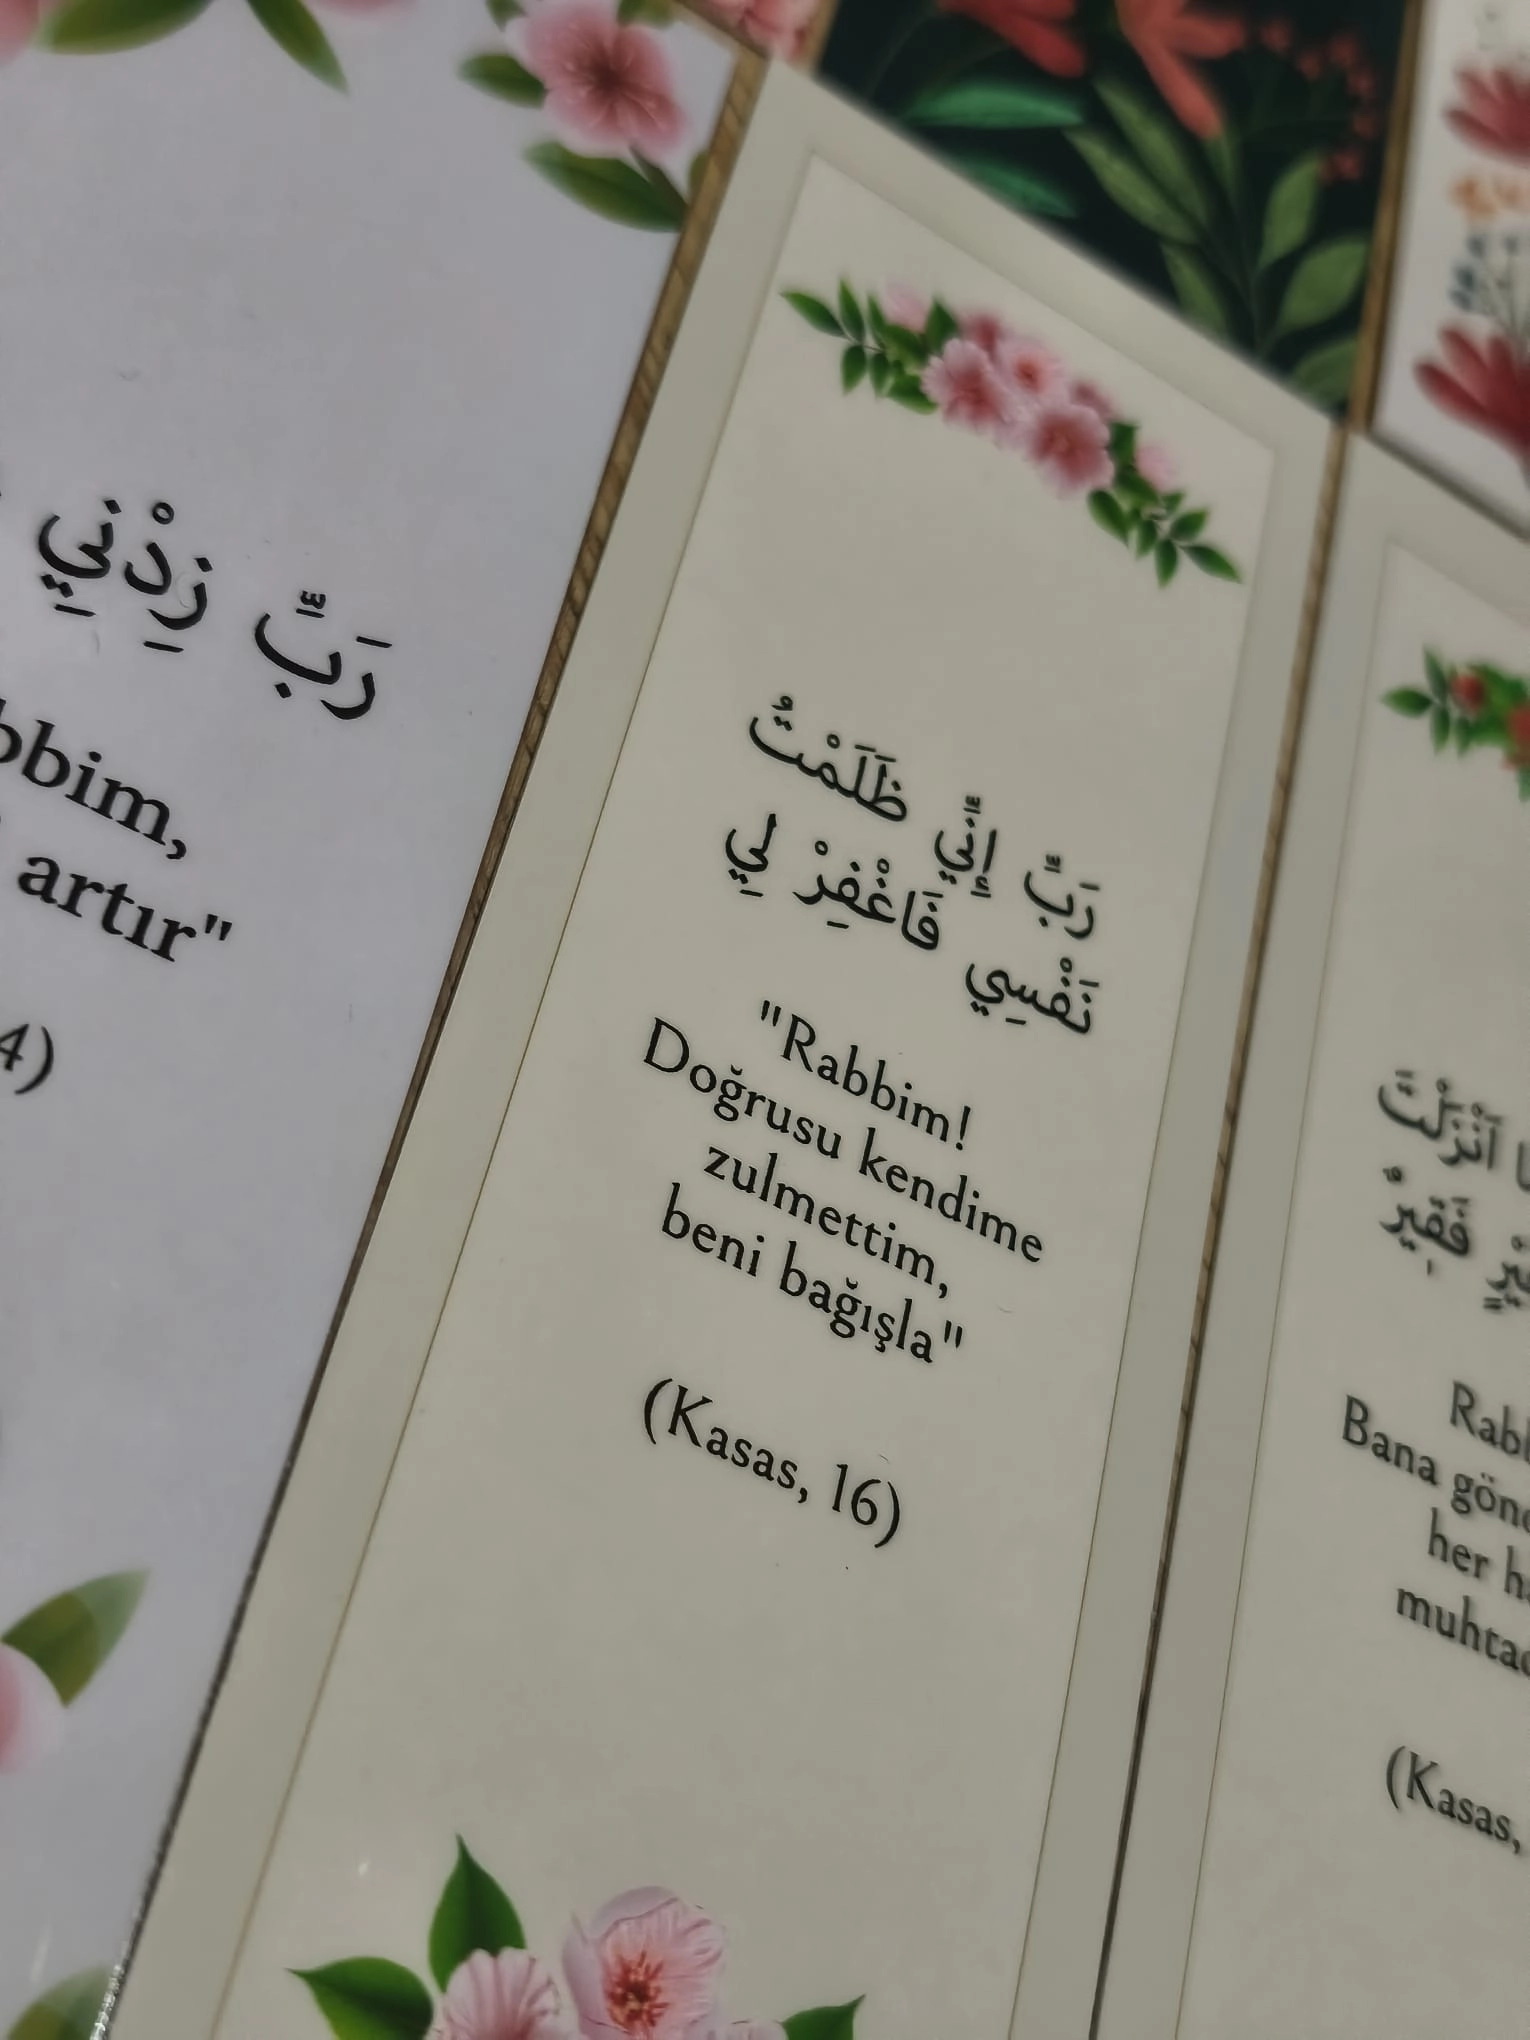 رَبِّ زِدْنِي
artır"
4)
رَبِّ إِنِّي ظَلَمْتُ
نَفْسِي فَاغْفِرْ لِي
"Rabbim!
Doğrusu kendime
zulmettim,
beni bağışla"
(Kasas, 16)
اَنْزَلْتَ
فَقِيرٌ
Bana
her
(Kasas,